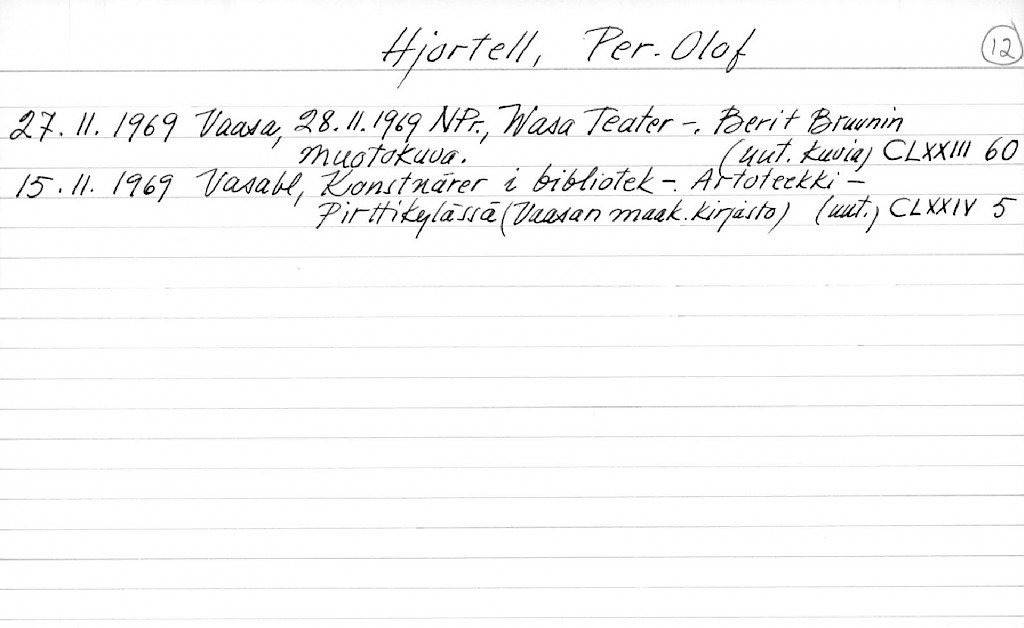 Hjortell, Per-Olof 12
27.11.1969 Vaasa, 28.11.1969 NPr., Wasa Teater -. Berit Bruunin
muotokuva. (uut. kuvia) CLXXIII 60
15.11.1969 Vasabl, Konstnärer i bibliotek -. Artoteekki -
Pirttikylässä (Vaasan maak. kirjasto) (uut.) CLXXIV 5